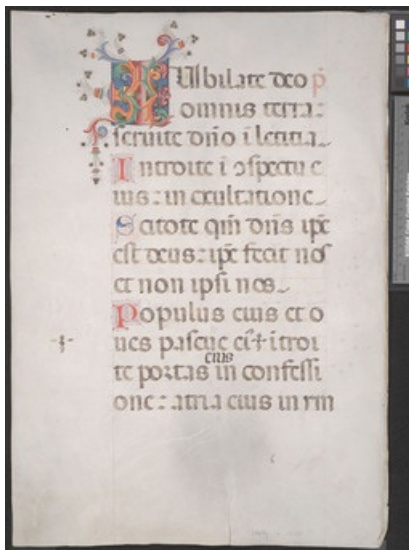 IUbilate deo p̄
omnis terra:
seruite dño i letitia
Introite i ɔspectu e
ius: in exultatione
Scitote qm̄ dñs ip̄e
est deus: ip̄e fecit nos
et non ipsi nos
Populus eius et o
ues pascue ei⁹ ✝ itroi
te portas eius in confessi
one: atria eius in ym